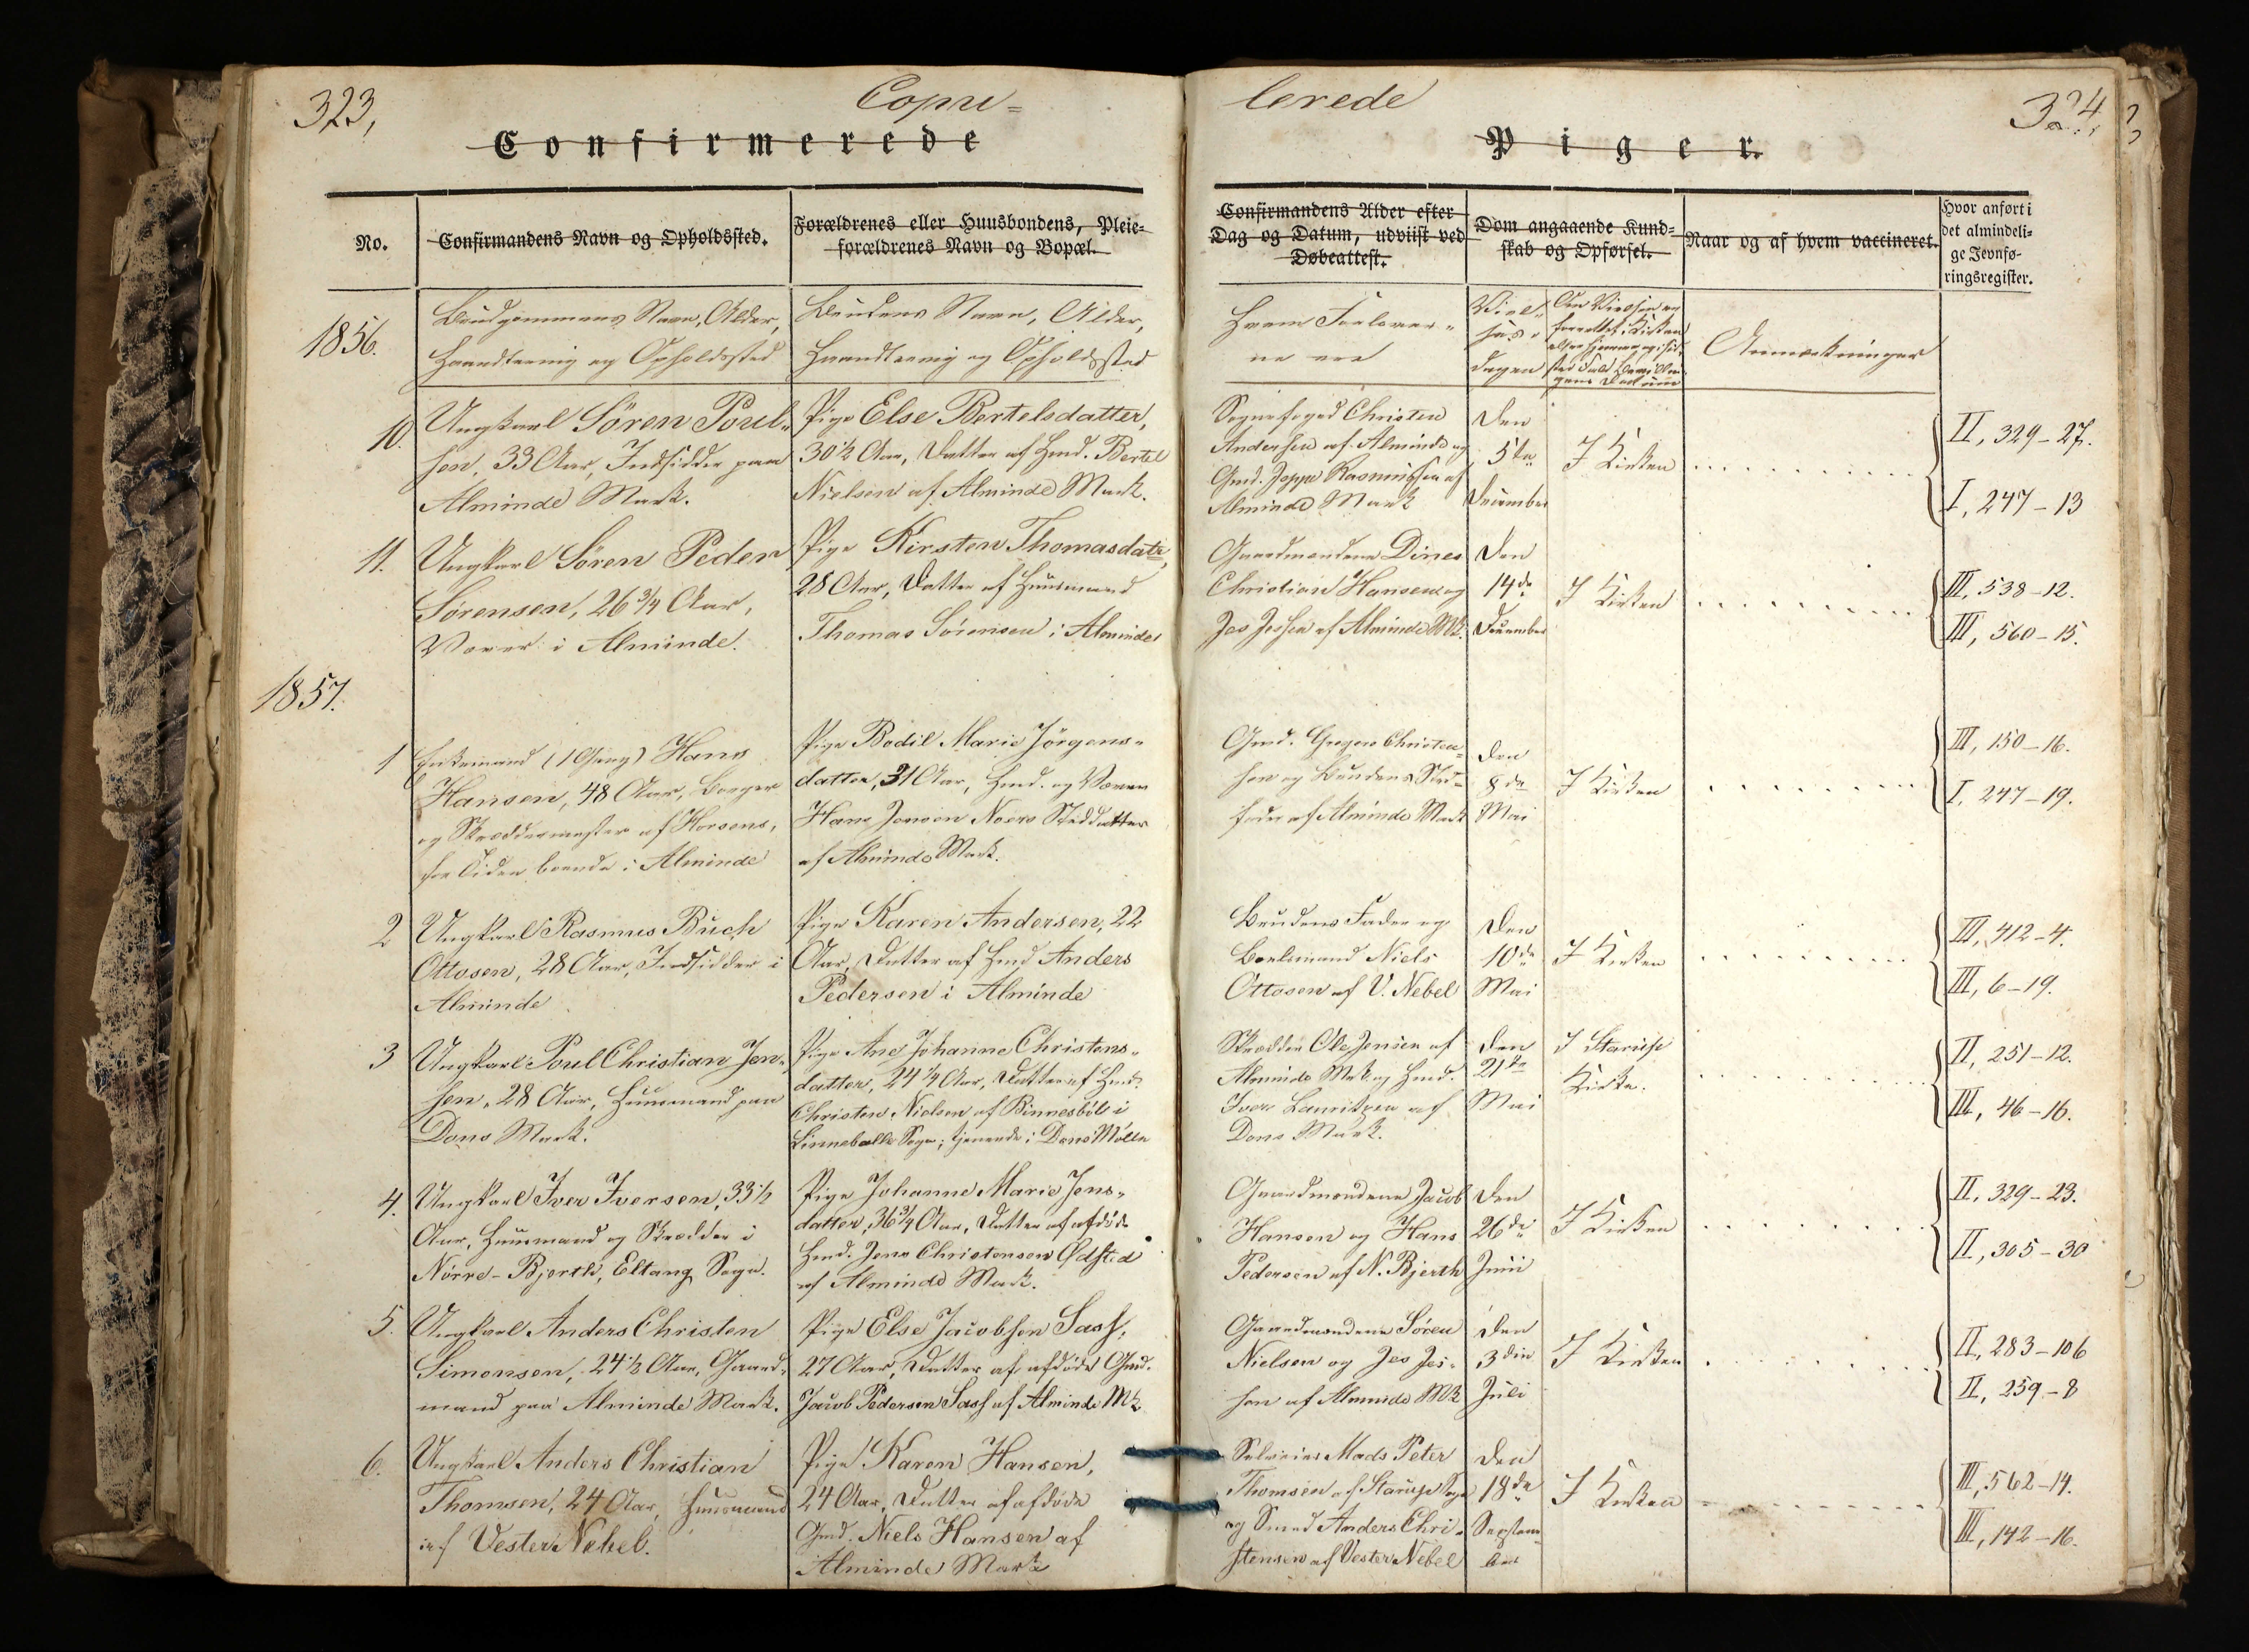 323,
Copu=
lerede
324
Confirmerede
Piger.
No.
Confirmandens Navn og Opholdssted.
Forældrenes eller Huusbondens, Pleie-
forældrenes Navn og Bopæl.
Confirmandens Alder efter
Dag og Datum, udviist ved
Døbeattest.
Dom angaaende Kund-
skab og Opførsel.
Naar og af hvem vaccineret.
Hvor anført i
det almindeli-
ge Jevnfø-
ringsregister.
1856.
Brudgommens Navn, Alder,
Haandtering og Opholdssted
Brudens Navn, Alder,
Haandtering og Opholdssted
Hvem Forlover-
ne ere
Viel-
ses-
dagen
Om Vielsen er
forrettet i Kirken
eller hjemme og i sid-
ste Fald Bevillin-
gens Datum
Anmærkninger
10.
Ungkarl Sören Poul-
sen, 33 Aar, Indsidder paa
Alminde Mark.
Pige Else Bertelsdatter,
30½ Aar, Datter af Hmd. Bertel
Nielsen af Alminde Mark.
Sognefoged Christen
Andersen af Alminde og
Gmd. Jeppe Rasmussen af
Alminde Mark
Den
5te
December
I Kirken
II, 329-27.
I, 247-13
11.
Ungkarl Sören Peder
Sörensen, 26¾ Aar,
Væver i Alminde.
Pige Kirsten Thomasdatr,
28 Aar, Datter af Huusmand
Thomas Sörensen i Alminde
Gaardmændene Dines
Christian Hansen og
Jes Jessen af Alminde Mk.
Den
14de
December
I Kirken
III, 538-12.
III, 560-15.
1857.
1
Enkemand (1 Gang) Hans
Hansen, 48 Aar, Borger
og Skræddermester af Horsens,
for Tiden boende i Alminde
Pige Bodil Marie Jörgens-
datter, 31 Aar, Hmd. og Væver
Hans Jensen Noers Steddatter
af Alminde Mark.
Gmd. Gregers Christen-
sen og Brudens Sted-
fader af Alminde Mark
Den
8de
Mai
I Kirken
III, 150-16.
I, 247-19.
2
Ungkarl Rasmus Buch
Ottosen, 28 Aar, Indsidder i
Alminde
Pige Karen Andersen, 22
Aar, Datter af Hmd Anders
Pedersen i Alminde
Brudens Fader og
Boelsmand Niels
Ottosen af V. Nebel
Den
10de
Mai
I Kirken
III, 412-4.
III, 6-19.
3
Ungkarl Poul Christian Jen-
sen, 28 Aar, Huusmand paa
Dons Mark.
Pige Ane Johanne Christens-
datter, 24¼ Aar, Datter af Hmd.
Christen Nielsen af Binnesböl i
Linneballe Sogn; tjenende i Dons Mölle
Skrædder Ole Jensen af
Alminde Mk. og Hmd.
Iver Lauritzen af
Dons Mark.
Den
21de
Mai
I Starup
Kirke.
II, 251-12.
III, 46-16.
4.
Ungkarl Iver Iversen, 33½
Aar, Huusmand og Skrædder i
Nörre-Bjerth, Eltang Sogn.
Pige Johanne Marie Jens-
datter, 36¾ Aar, Datter af afdöde
Hmd. Jens Christensen Ødsted
af Alminde Mark.
Gaardmændene Jacob
Hansen og Hans
Pedersen af N. Bjerth
Den
26de
Juni
I Kirken
II, 329-23.
II, 305-30
5.
Ungkarl Anders Christen
Simonsen, 24½ Aar, Gaard-
mand paa Alminde Mark.
Pige Else Jacobsen Sass,
27 Aar, Datter af afdöde Gmd.
Jacob Pedersen Sass af Alminde Mk
Gaardmændene Sören
Nielsen og Jes Jes-
sen af Alminde Mk
Den
3die
Juli
I Kirken
II, 283-106
II, 259-8
6.
Ungkarl Anders Christian
Thomsen, 24 Aar, Huusmand
af Vester Nebel.
Pige Karen Hansen,
24 Aar, Datter af afdöde
Gmd. Niels Hansen af
Alminde Mark
Mads Peter
Thomsen af Starup Sogn
og Smed Anders Chri-
stensen af Vester Nebel
Den
18de
Septem-
ber
I Kirken
III, 562-14.
III, 142-16.